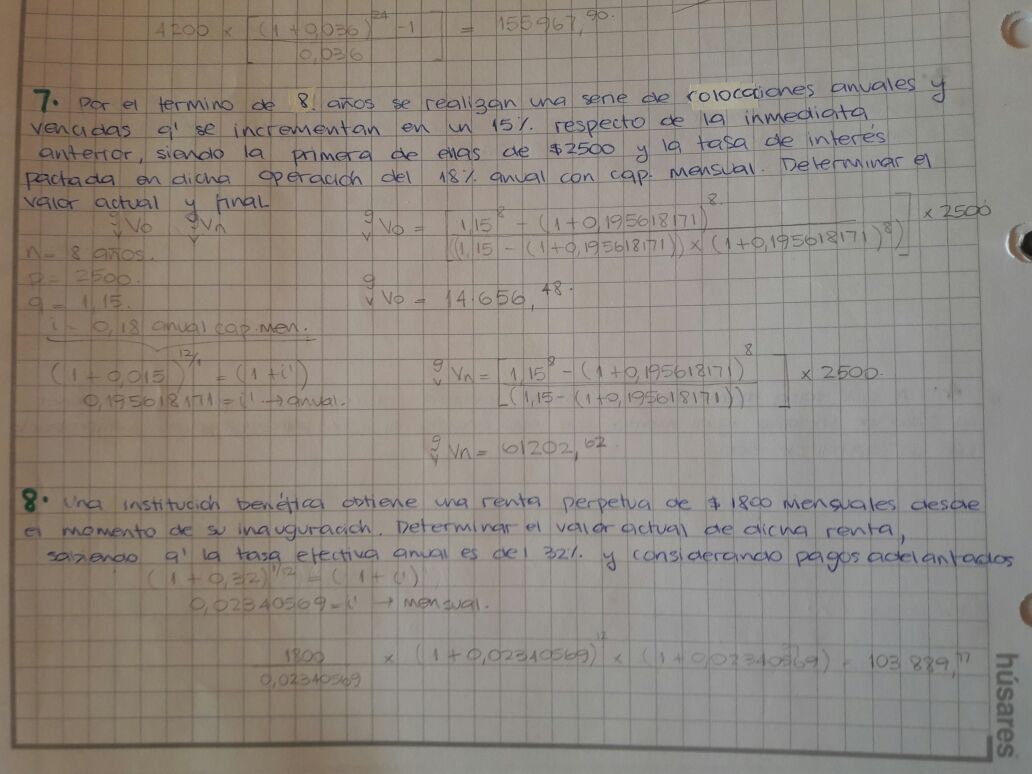 4200 × [(1+0,036)^24 -1 / 0,036] = 155967,90.
7. Por el termino de 8 años se realizan una serie de colocaciones anuales y
vencidas q' se incrementan en un 15% respecto de la inmediata
anterior, siendo la primera de ellas de $2500 y la tasa de interés
pactada en dicha operación del 18% anual con cap. mensual. Determinar el
valor actual y final.
g v Vo g v Vn
g v Vo = [1,15^8 - (1+0,195618171)^8 / ((1,15 - (1+0,195618171)) × (1+0,195618171)^8)] × 2500
n= 8 años.
p= 2500.
g v Vo = 14.656,48.
q= 1,15.
i= 0,18 anual cap. men.
(1+0,015)^12/1 = (1+i')
0,195618171 = i' → anual.
g v Vn = [1,15^8 - (1+0,195618171)^8 / (1,15-(1+0,195618171))] × 2500.
g v Vn = 61202,62
8. Una institución benéfica obtiene una renta perpetua de $ 1800 mensuales desde
el momento de su inauguración. Determinar el valor actual de dicha renta,
sabiendo q' la tasa efectiva anual es del 32% y considerando pagos adelantados
(1+0,32)^1/12 = (1+i')
0,02340569=i' → mensual.
1800 / 0,02340569 × (1+0,02340569) × (1+0,02340569) = 103.889,77
húsares